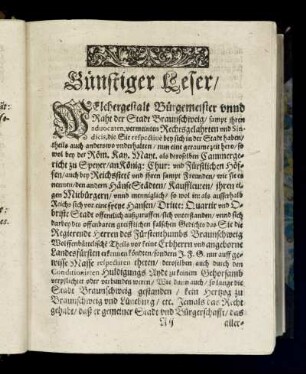 Günstiger Leser/
WElchergestalt Bürgemeister vnnd
Raht der Stadt Braunschweig/ sampt ihren
Advocaten, vermeinten Rechtsgelahrten vnd Sin-
dicis, die Sie respective bey sich in der Stadt haben/
theils auch anderswo vnderhalten/ nun eine geraume zeit hero/ so
wol bey der Röm. Kay. Mayt. als deroselben Cammerge-
richt zu Speyer/ im König: Chur: vnd Fürstlichen Hö-
fen/ auch bey Reichsstett vnd ihren sampt Freunden/ wie sie es
nennen/ den andern HänseStädten/ Kauffleuten/ ihren eige-
nen Mitbürgern/ vnd menniglich/ so wol im als ausserhalb
Reichs sich vor eine freye Hansen/ Dritte: Quartir vnd O-
brigste Stadt offentlich außzuruffen sich vnterstanden/ vnd sich
darbey des offenbaren greifflichen falschen Berichts das Sie die
Regierende Herren des Fürstenthumbs Braunschweig
Wolffenbüttelschē Theils vor keine Erbherrn vnd angeborne
Landesfürsten erkennen köndten/ sondern J. F. G. nur auff ge-
wisse Masse respectiren theten/ deroselben auch durch den
Conditionirten Huldigungs Ayde zu keinem Gehorsamb
verpflichtet oder verbunden weren/ Wie dann auch/ so lange die
Stadt Braunschweig gestanden/ kein Hertzog zu
Braunschweig vnd Lüneburg/ etc. Jemals das Recht
gehabt/ daß er gemeiner Stadt vnd Bürgerschafft/ das
A ij aller-